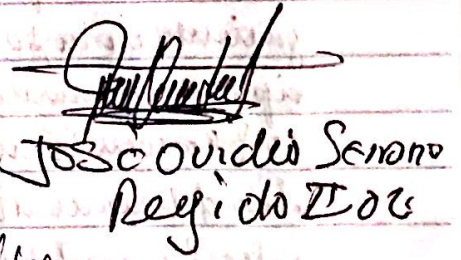 José Ovidio Serrano
Regido II or